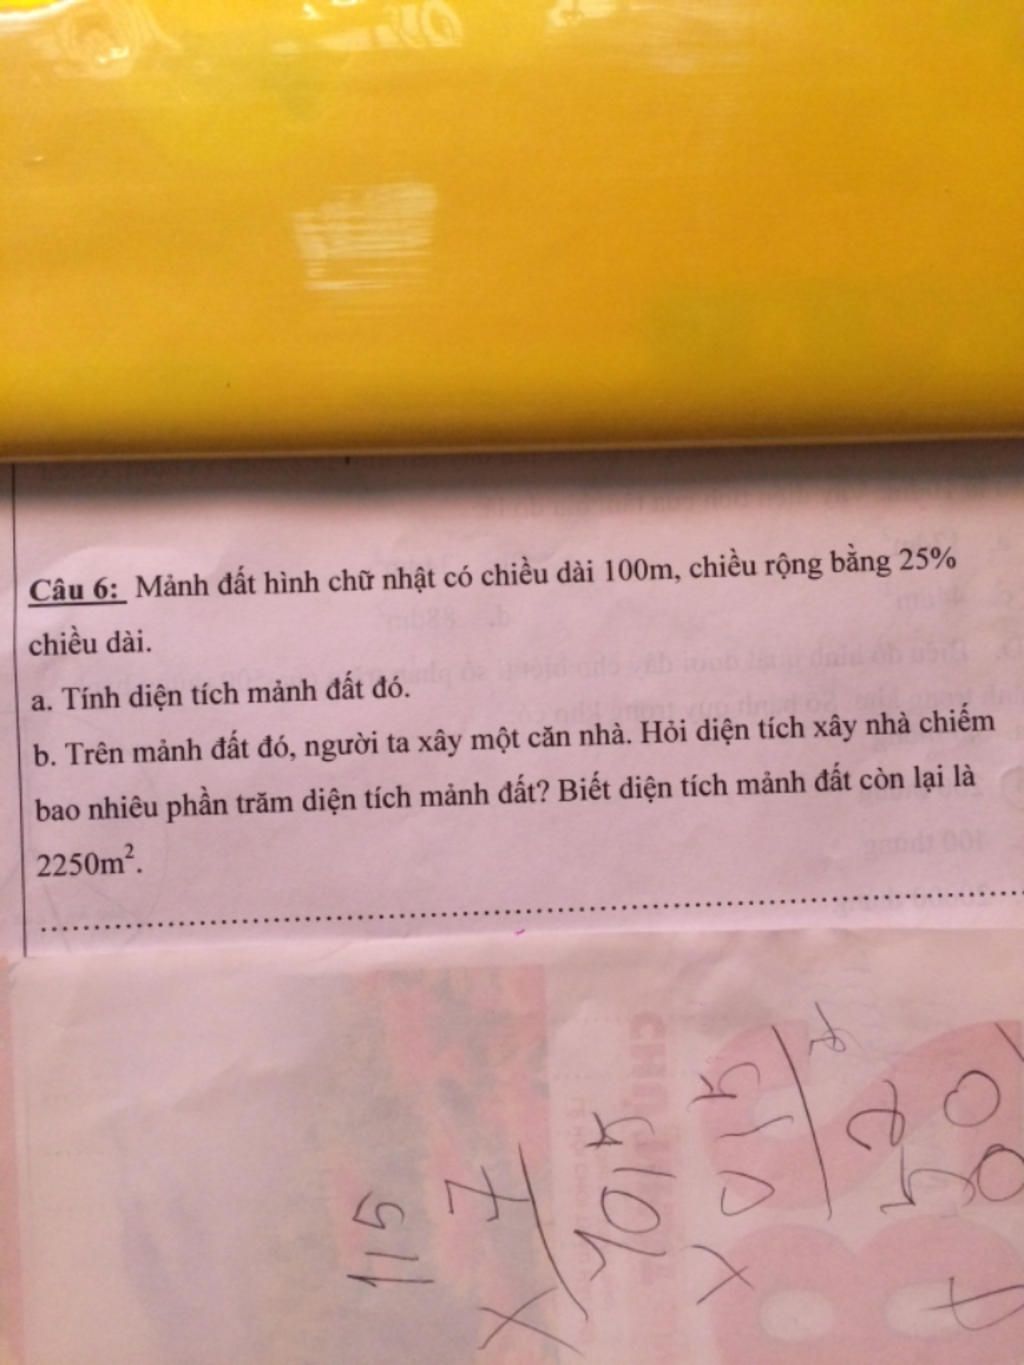 Câu 6: Mảnh đất hình chữ nhật có chiều dài 100m, chiều rộng bằng 25%
chiều dài.
a. Tính diện tích mảnh đất đó.
b. Trên mảnh đất đó, người ta xây một căn nhà. Hỏi diện tích xây nhà chiếm
bao nhiêu phần trăm diện tích mảnh đất? Biết diện tích mảnh đất còn lại là
2250m².
115
7